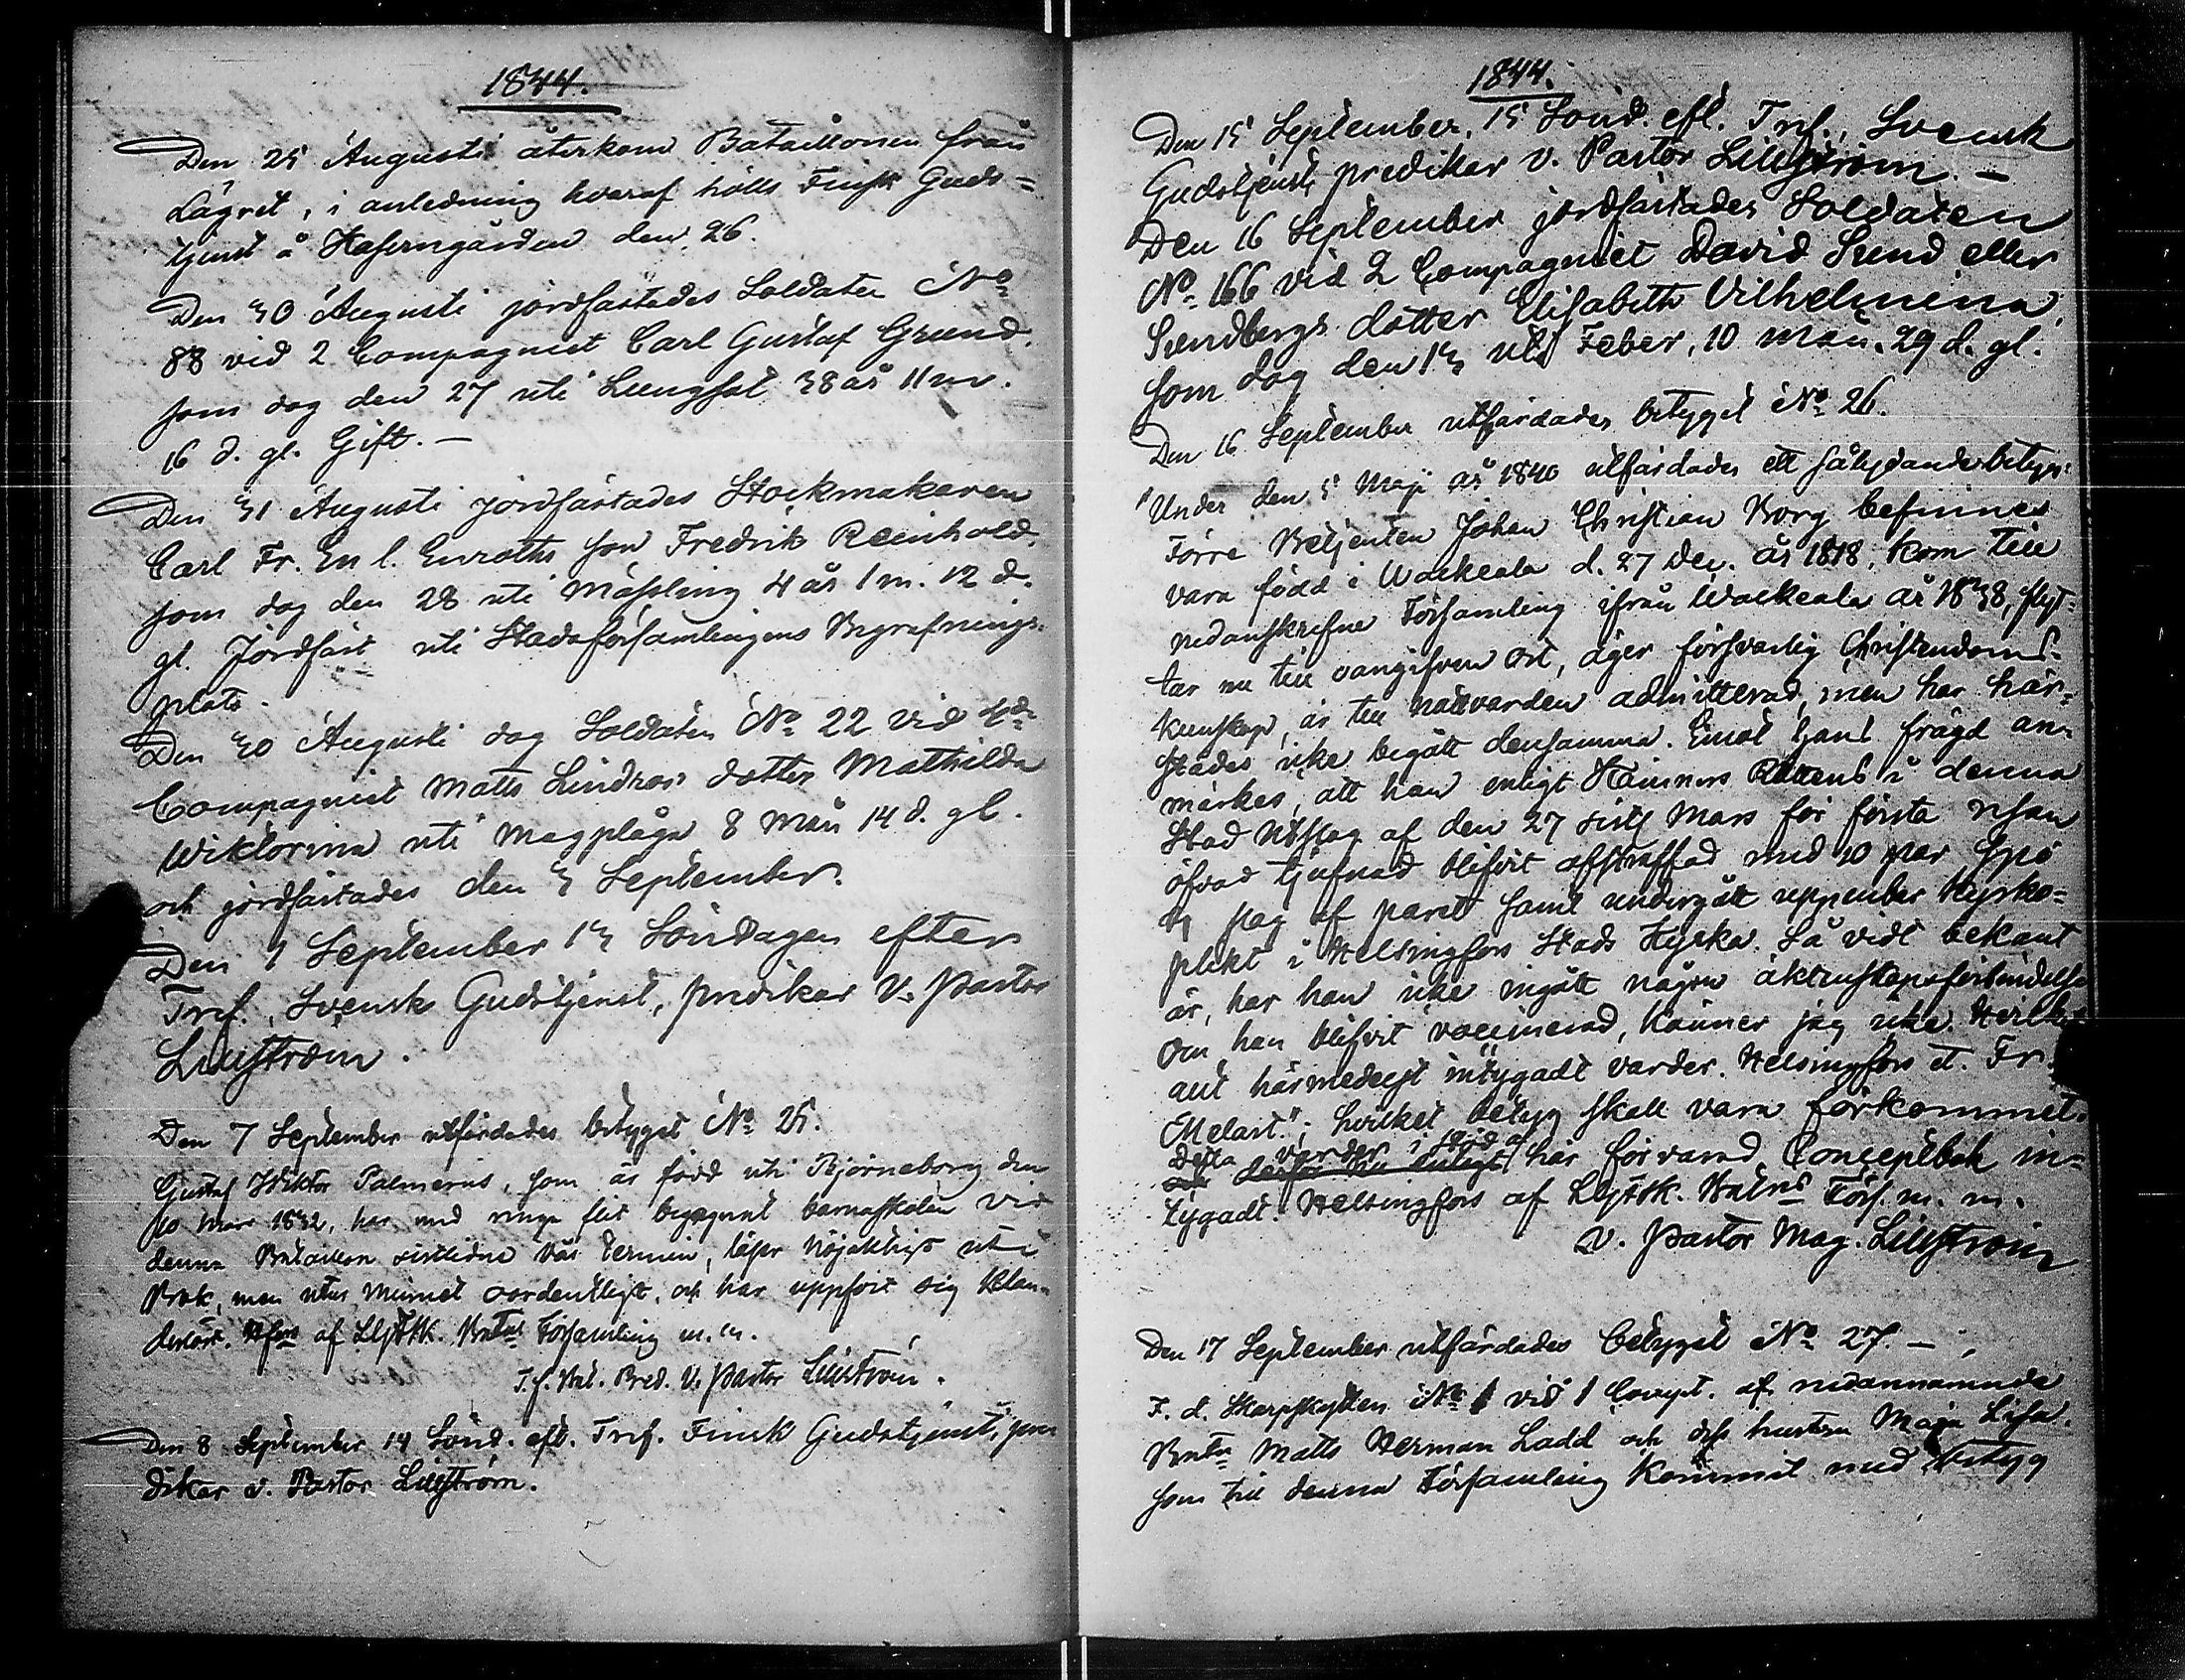 1844.
Den 25 Augusti återkom Bataillonen från
Lägret, i anledning hvaraf hölls Finsk Guds-
tjenst å Kaserngården den 26.
Den 30 Augusti jordfästades Soldaten No
88 vid 2 Compagniet Carl Gustaf Grund,
som dog den 27 uti Lungsot 38 år 11 m.
16 d. gl. Gift. –
Den 31 Augusti jordfästades Stockmakaren
Carl Fr. En l. Enroths son Fredrik Reinhold,
som dog den 28 uti Mässling 4 år 1 m. 12 d.
gl. Jordfäst uti Stadsförsamlingens Begrafnings-
plats.
Den 30 Augusti dog Soldaten No 22 vid
Compagniet Matts Lindros dotter Mathilda
Wiktorina uti Magplåga 8 Mån 14 d. gl.
och jordfästades den 3 September.
Den 1 September 13 Söndagen efter
Tref. Svensk Gudstjenst, predikar V. Pastor
Lillström.
Den 7 September utfärdades betyget No 25.
Gustaf Wiktor Palmerus, som är född uti Björneborg den
10 Mars 1832, har med ringa flit begagnat barnaskolan vid
denna Bataillon sistlidne Vår Termin, läser nöjaktigt uti
Bok, men utur Minnet oordentligt, och har uppfört sig klan-
derlöst. Hfors af LgFSk. Batns Församling m.m.
T.f. Bat. Pred. V. Pastor Lillström.
Den 8 September 14 Sönd. eft. Tref. Finsk Gudstjenst, pre-
dikar v. Pastor Lillström.
1844.
Den 15 September, 15 Sönd. eft. Tref., Svensk
Gudstjenst, predikar v. Pastor Lillström. –
Den 16 September jordfästades Soldaten
No 166 vid 2 Compagniet David Sund eller
Sundbergs dotter Elisabeth Vilhelmina,
som dog den 13 uti Feber, 10 mån. 29 d. gl.
Den 16 September utfärdades betyget No 26.
"Under den 5 Maji år 1840 utfärdades ett sålydande betyg:
Förre Betjenten Johan Christian Borg befinnes
vara född i Walkeala d. 27 Dec. år 1818, kom till
nedanskrefne Församling ifrån Walkeala år 1838, flyt-
tar nu till oangifven ort, äger försvarlig Christendoms-
kunskap, är till nattvarden admitterad, men har här-
städes icke begått densamma. Emot hans frägd an-
märkes, att han enligt Kämners Rättens i denna
Stad Utslag af den 27 sistl Mars för första resan
öfvad tjufnad blifvit afstraffad med 10 par spö
3 slag af paret samt undergått uppenbar Kyrko-
plikt i Helsingfors Stads Kyrka. Så vidt bekant
är, har han icke ingått någon äktenskapsförbindelse
Om han blifvit vaccinerad, känner jag icke. Hvilket
allt härmedelst intygadt varder. Helsingfors et. Fr.
Melart."; hvilket betyg skall vara förkommet.
Detta varder i stöd af
här förvarad Conceptbok in-
tygadt. Helsingfors af LgFSk. Batns Förs. m. m.
V. Pastor Mag. Lillström
Den 17 September utfärdades betyget No 27. –
F. d. Skarpskytten No 1 vid 1 Compt. af nedannämnde
Batn Matts Herman Ladd och dess hustru Maja Lisa
som till denna Församling kommit med betyg